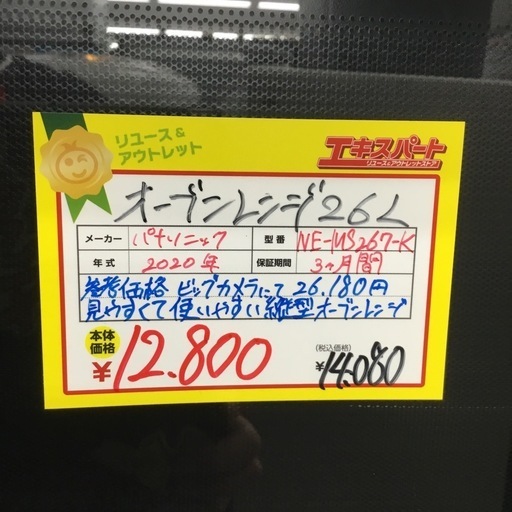 リユース&
アウトレット
エキスパート
リユース&アウトレットストア
オーブンレンジ 26L
メーカー パナソニック 型番 NE-MS267-K
年式 2020年 保証期間 3ヶ月間
参考価格 ビックカメラにて 26.180円
見やすくて使いやすい縦型オーブンレンジ
本体価格 ¥12.800
(税込価格) ¥14.080